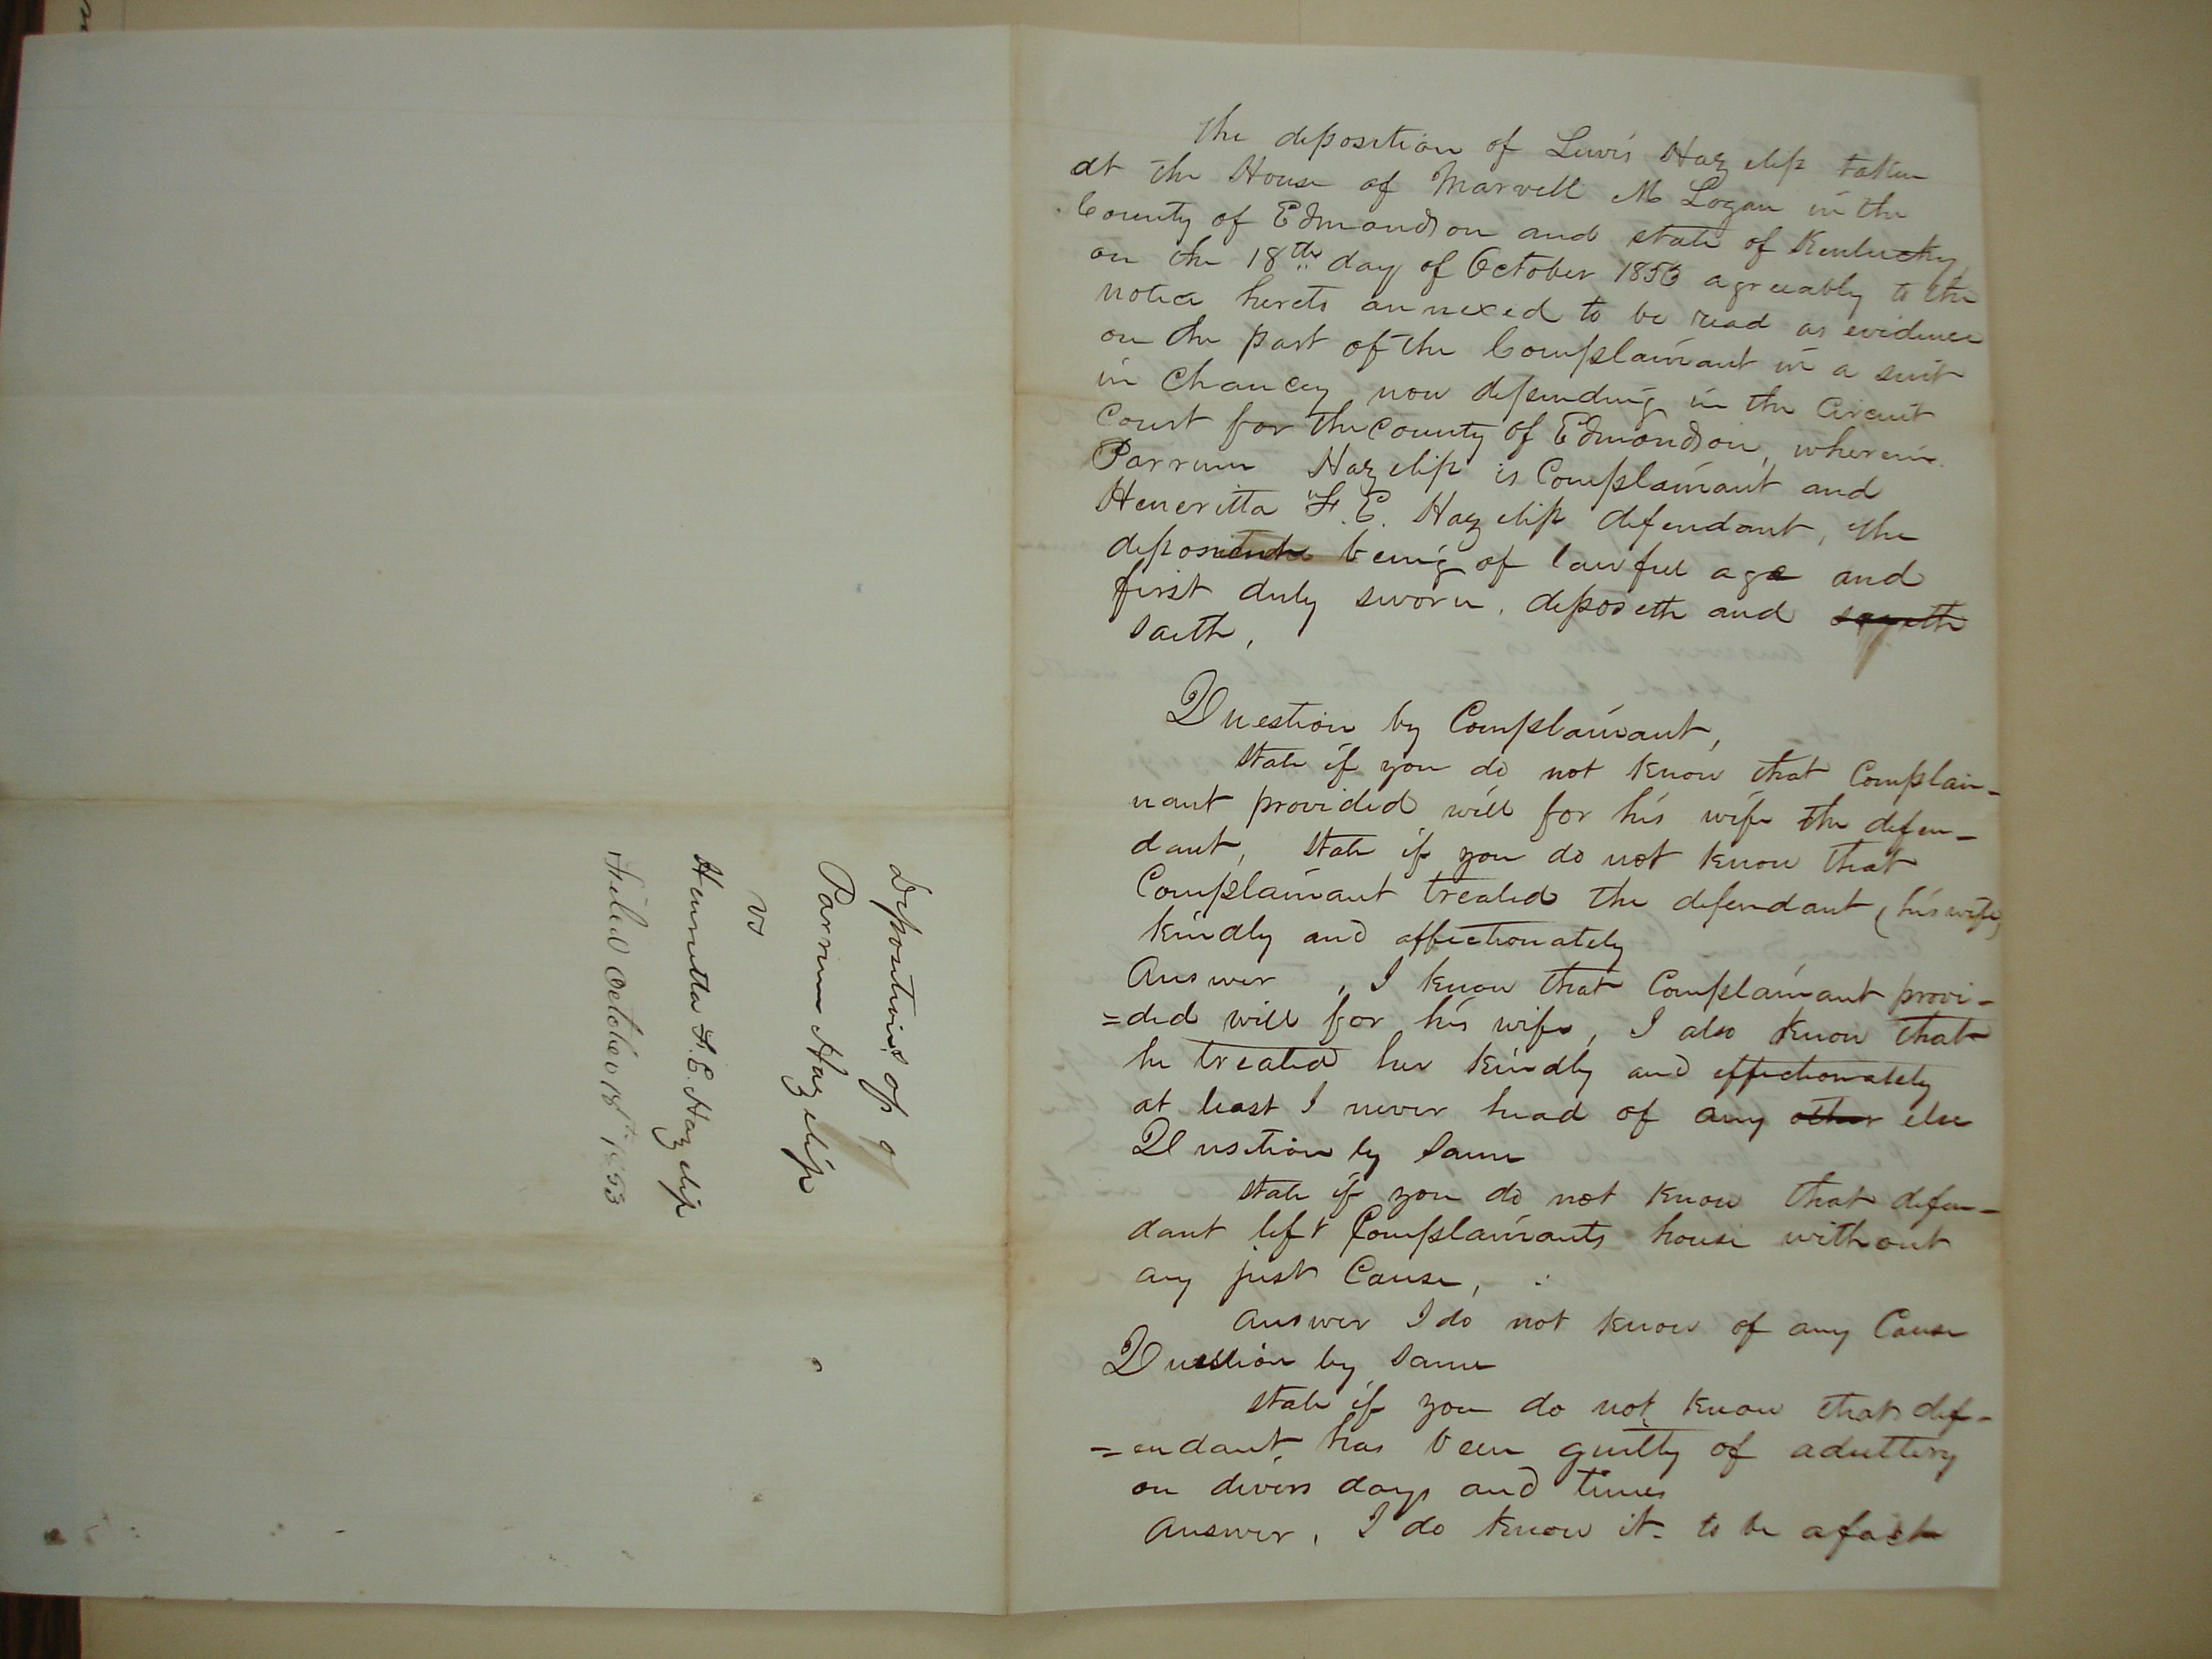 Depositions of
Parrum Hazelip
vs
Henneretta F. E. Hazelip
Filed October 18th 1853
The deposition of Lewis Hazelip taken
at the House of Marvell M Logan in the
County of Edmondson and state of Kentucky
on the 18th day of October 1853 agreeably to the
notice hereto annexed to be read as evidence
on the part of the Complainant in a suit
in Chancey now depending in the Circuit
Court for the County of Edmondson, wherein
Parrum Hazelip is Complainant and
Heneritta F. E. Hazelip defendant, the
being of lawful age and
first duly sworn, deposeth and sayeth
saith,
Question by Complainant,
State if you do not know that Complain-
nant provided well for his wife the defen-
dant, State if you do not know that
Complainant treated the defendant (his wife)
kindly and affectionately
Answer, I know that Complainant provi-
=ded well for his wife, I also know that
he treated her kindly and effectionately
at least I never head of any other else
Qusition by Same
State if you do not know that defen-
dant left Complainants house without
any just Cause,
Answer I do not know of any Cause
Question by Same
State if you do not know that def-
=endant has been guilty of adultery
on divers days and times
Answer, I do know it to be a fact